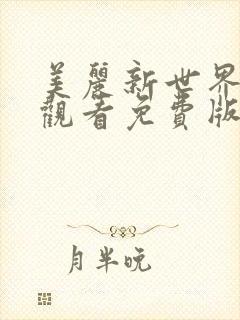 美麗新世界
觀看免費版
月半晚